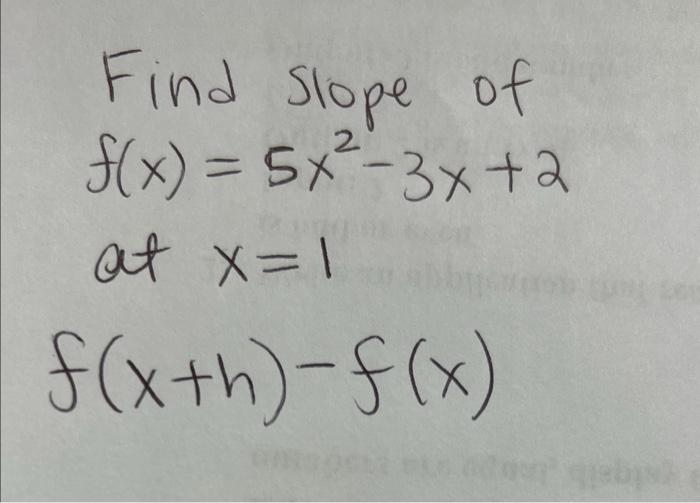 Find slope of
f(x) = 5x² - 3x + 2
at x = 1
f(x+h) - f(x)